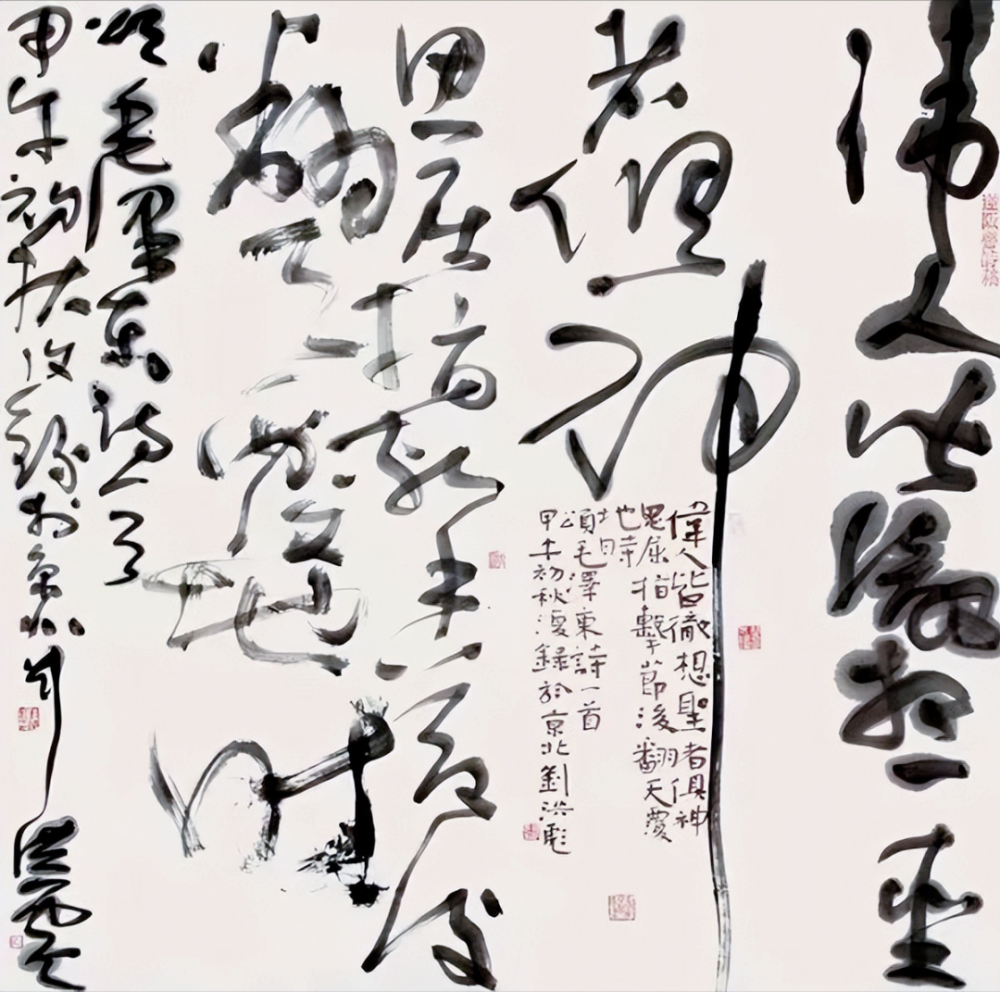 偉人皆徹想聖
者俱神
偉人皆徹想聖者俱神
思屈指擊節後翻天覆
地時
頌毛澤東詩一首
甲午初秋復錄於京北劉洪彪
思屈指擊節後
翻天覆地時
頌毛澤東詩一首
甲午初秋復錄於京北劉洪彪